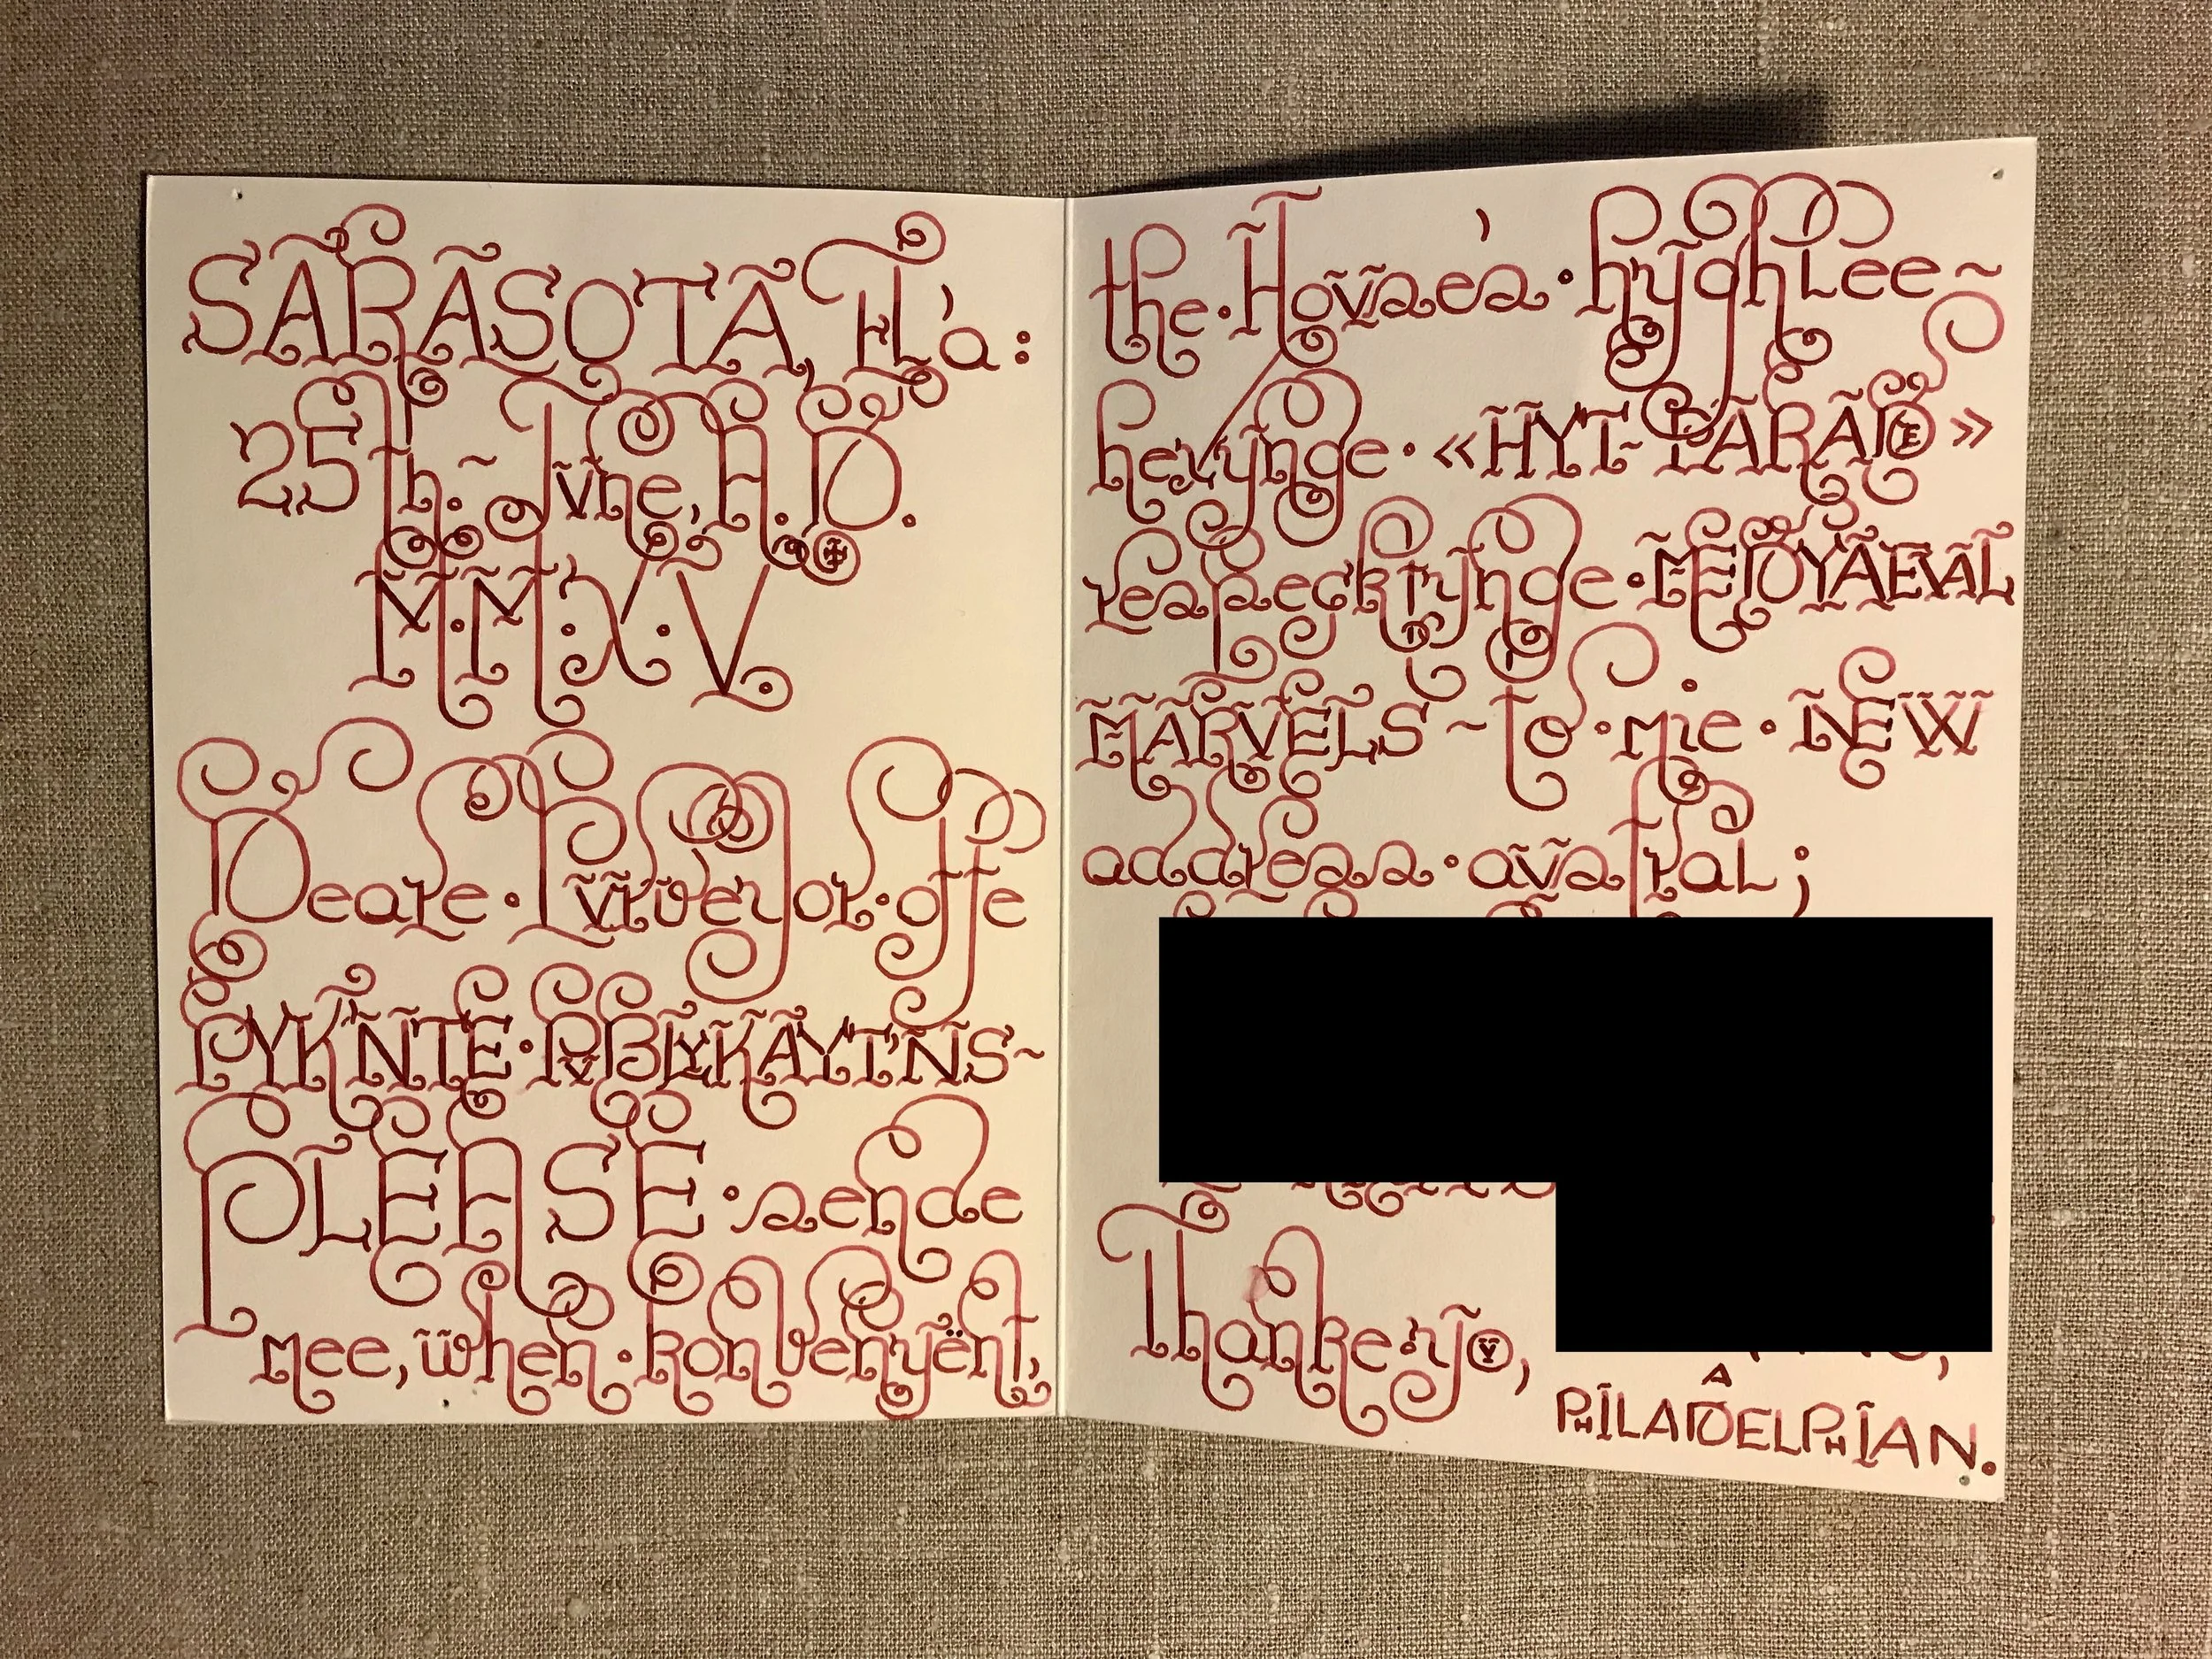 SARASOTA, FL'a:
25th. ~ Jvne, A.D.
M.M:X:V.
Deare · Pvrveyor · offe
PYK'NTE · PVBLYKAYT'NS~
PLEASE · sende
mee, when · konvenyënt,
the · Hovses' · hyghlee~
herynge · «HYT-PARADE»
respecktynge · MEDYAEVAL
MARVELS ~ to · mie · NEW
address · avstral;
Thanke · yov,
A
PHILADELPHIAN.